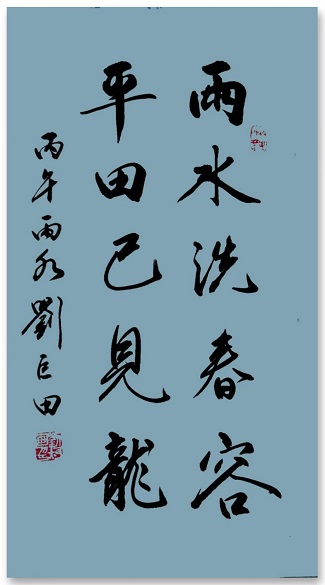 雨水洗春容
平田已見龍
丙午雨水劉巨田